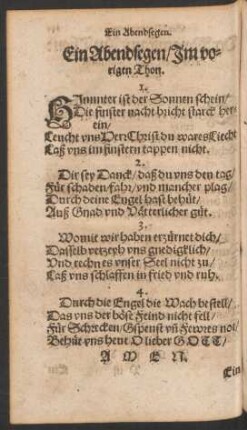 Ein Abendsegen.
Ein Abendsegen/Im vo-
rigen Thon.
1.
HInunter ist der Sonnen schein/
Die finster nacht bricht starck her-
ein/
Leucht vns Herr Christ du wares Liecht
Laß vns im finstern tappen nicht.
2.
Dir sey Danck/ daß du vns den tag/
Für schaden/fahr/ vnd mancher plag/
Durch deine Engel hast behüt/
Auß Gnad vnd Vätterlicher güt.
3.
Womit wir haben erzürnet dich/
Dasselb verzeyh vns gnediglich/
Vnd rechn es vnser Seel nicht zu/
Laß vns schlaffen in fried vnd ruh.
4.
Durch die Engel die Wach bestell/
Das vns der böse Feind nicht fell/
Für Schrecken/ Gspenst vñ Fewres not/
Behüt vns heut O lieber GOTT/
A M E N.
Ein